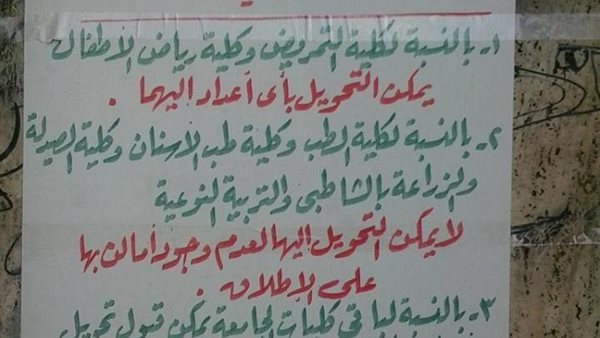 ١- بالنسبة لكلية التمريض وكلية رياض الأطفال
يمكن التحويل بأى أعداد اليهما .
٢- بالنسبة لكلية الطب وكلية طب الاسنان وكلية الصيدلة
والزراعة بالشاطبى والتربية النوعية
لا يمكن التحويل إليها لعدم وجود أماكن بها
على الإطلاق .
٣- بالنسبة لباقى كليات الجامعة يمكن قبول تحويل